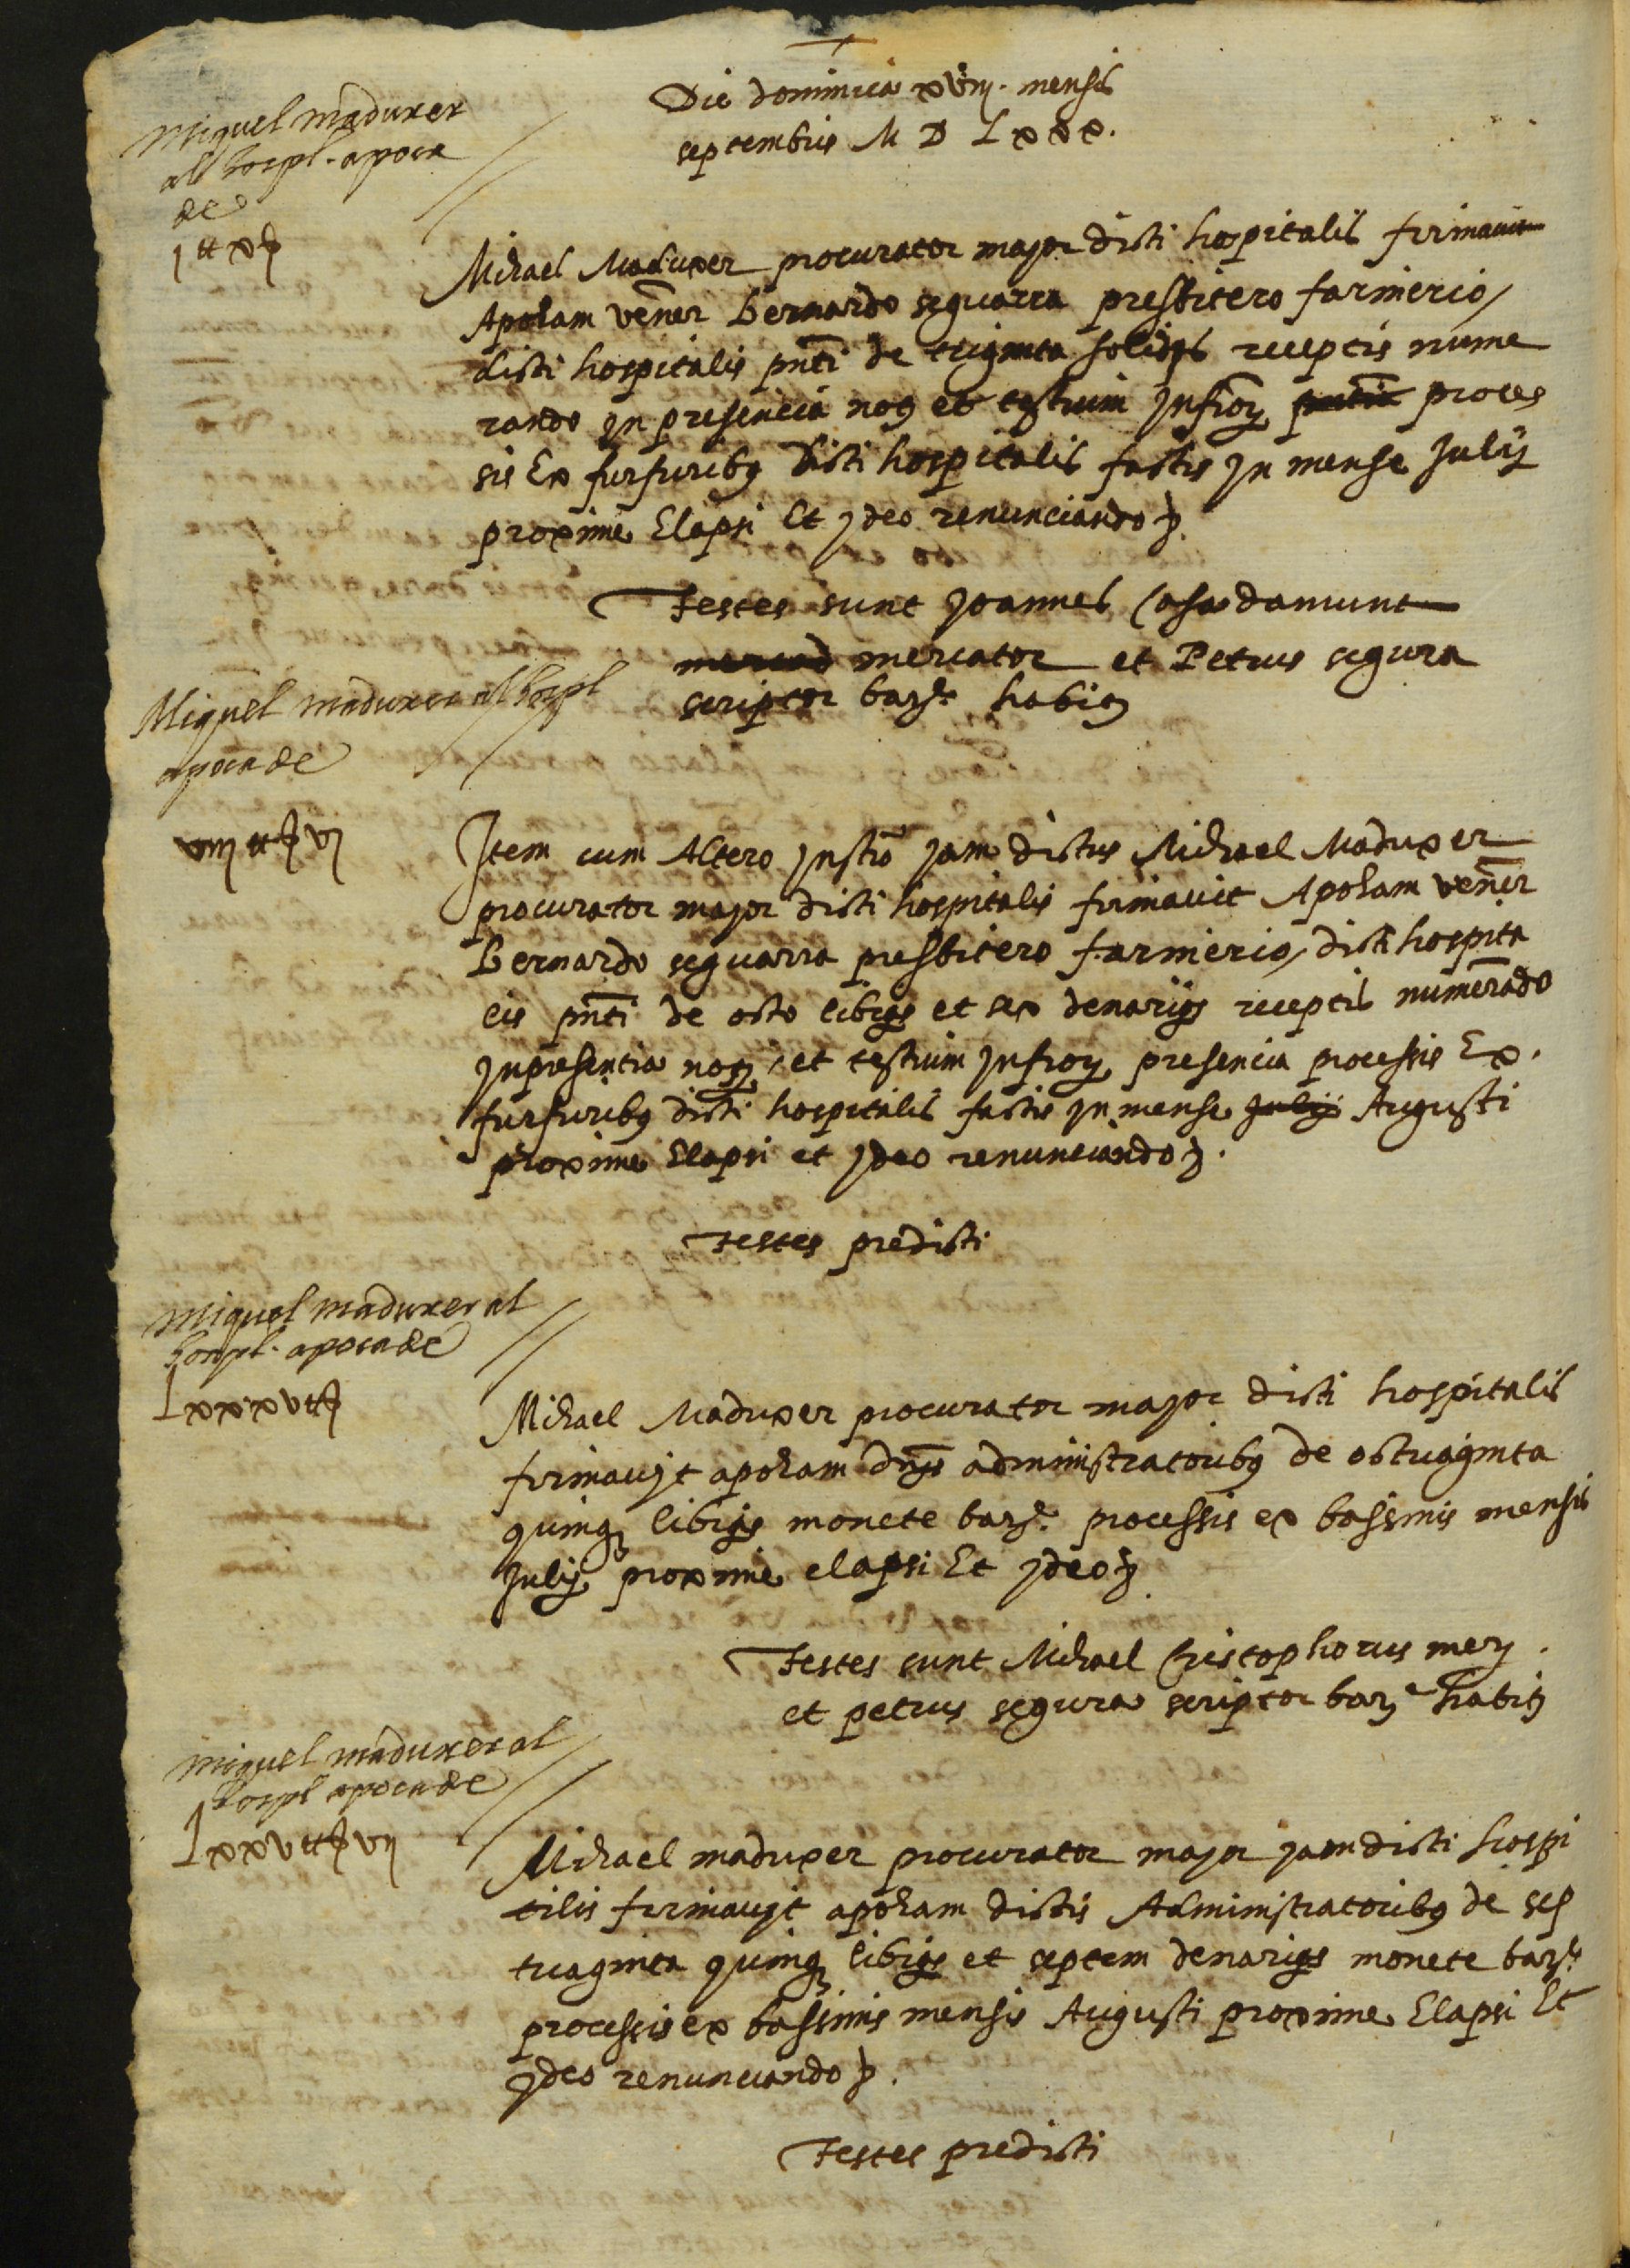 Die dominica xviij. mensis
septembris M D Lxxx.
Miquel maduxer
al hospl. apoca
de
j ℔ x ß
Michael Maduxer procurator major dicti hospitalis firmavit
Apocham vener Bernardo seguarra presbitero farinerio
dicti hospitalis pnti de triginta solidis receptis nume
rando in presencia noy et testium infroy proces
sis Ex furfuribus dicti hospitalis factis in mense Julij
proxime Elapsi Et jdeo renunciando &.
Testes sunt Joannes Casadamunt
mercad mercator et Petrus segura
scriptor barne habit
Miquel maduxer al hospl
apoca de
viij ℔ ß vj
Item cum Altero instro jam dictus Michael Maduxer
procurator major dicti hospitalis firmavit Apocham vener
Bernardo seguarra presbitero farinerio dicti hospita
lis pnti de octo libris et sex denariis receptis numerado
in presentia noy et testium infroy presencia processis Ex.
furfuribus dicti hospitalis factis in mense Julij Augusti
proxime Elapsi et jdeo renunciando &.
Testes predicti
Miquel maduxer al
hospl. apoca de
Lxxxv ℔ ß
Michael Maduxer procurator major dicti hospitalis
firmavjt apocham dnis administratoribus de octuaginta
quinq libris monete barne. processis ex bassinis mensis
Julij proxime elapsi Et jdeo &
Testes sunt Michael Cristophorus mer.
et petrus segura scriptor barne habit
Miquel maduxer al
hospl apoca de
Lxxv ℔ ß vij
Michael maduxer procurator major jam dicti hospi
tilis firmavjt apocham dictis Administratoribus de sep
tuaginta quinq libris et septem denariis monete barne
processis ex bassinis mensis Augusti proxime Elapsi Et
jdeo renunciando &.
Testes predicti